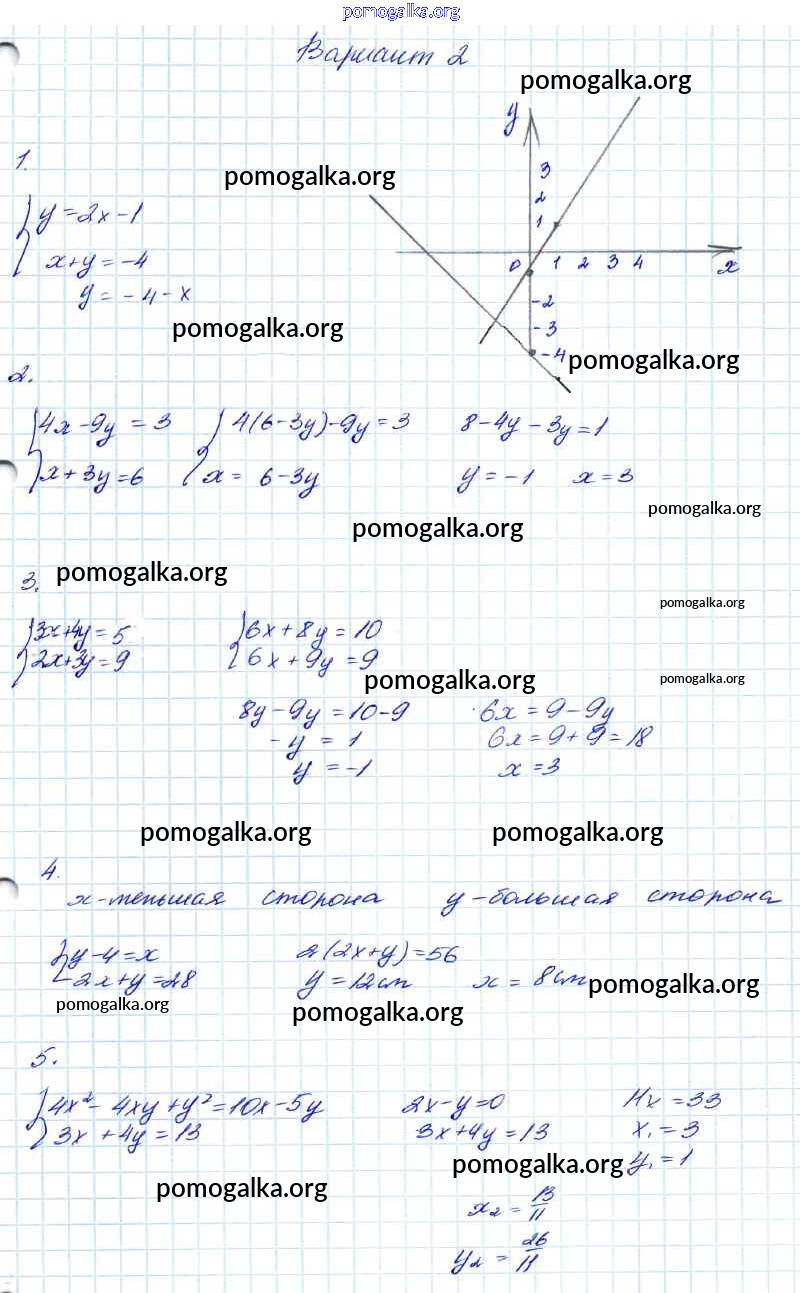 pomogalka.org
Вариант 2
pomogalka.org
y
1.
3
pomogalka.org
2
y = 2x - 1
1
x + y = -4
0 1 2 3 4 x
y = -4 - x
-2
pomogalka.org
-3
-4 pomogalka.org
2.
4x - 9y = 3 4(6 - 3y) - 9y = 3 8 - 4y - 3y = 1
x + 3y = 6 x = 6 - 3y y = -1 x = 3
pomogalka.org
pomogalka.org
3. pomogalka.org
pomogalka.org
3x + 4y = 5 6x + 8y = 10
2x + 3y = 9 6x + 9y = 9
pomogalka.org pomogalka.org
8y - 9y = 10 - 9 6x = 9 - 9y
-y = 1 6x = 9 + 9 = 18
y = -1 x = 3
pomogalka.org pomogalka.org
4.
x - меньшая сторона y - большая сторона
y - 4 = x 2(2x + y) = 56
2x + y = 28 y = 12 см x = 8 см pomogalka.org
pomogalka.org pomogalka.org
5.
4x² - 4xy + y² = 10x - 5y 2x - y = 0 11x = 33
3x + 4y = 13 3x + 4y = 13 x₁ = 3
pomogalka.org y₁ = 1
pomogalka.org
x₂ = 13/11
y₂ = 26/11